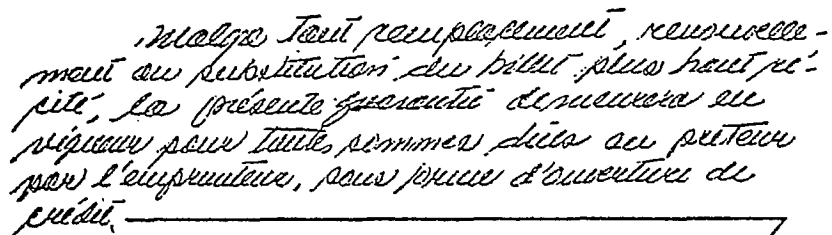 Malgré tout remplacement, renouvelle-
ment ou substitution du billet plus haut ré-
cité, la présente garantie demeurera en
vigueur pour toutes sommes dûes au prêteur
par l'emprunteur, sous forme d'ouverture de
crédit.